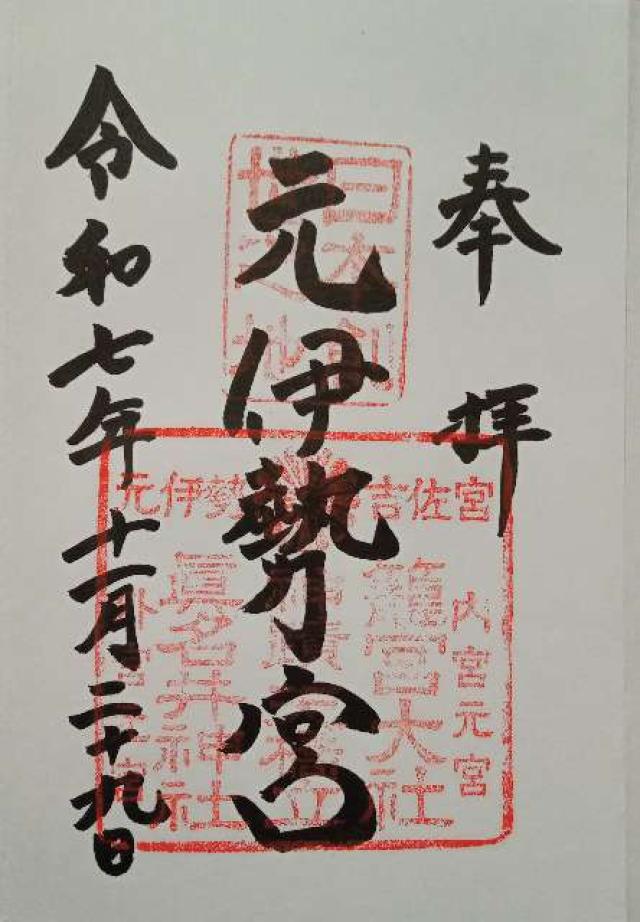 奉拝
元伊勢宮
令和七年十一月二十九日
日本創
世之地
元伊勢
吉佐宮
内宮元宮
籠宮大社
眞名井神社